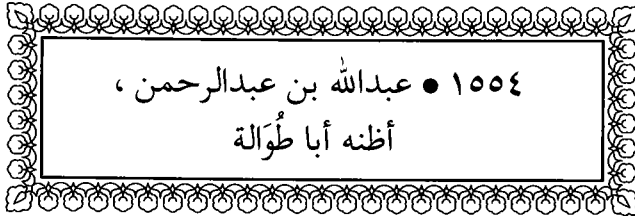 ١٥٥٤ • عبدالله بن عبدالرحمن ،
أظنه أبا طُوَالة